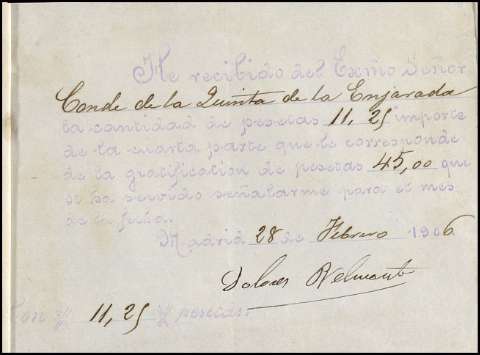 He recibido del Excmo Señor
Conde de la Quinta de la Enjarada
la cantidad de pesetas 11,25 importe
de la cuarta parte que le corresponde
de la gratificacion de pesetas 45,00 que
se ha servido señalarme para el mes
de la fecha..
Madrid 28 de Febrero 1906
Dolores Belmonte
Son 11,25 pesetas.